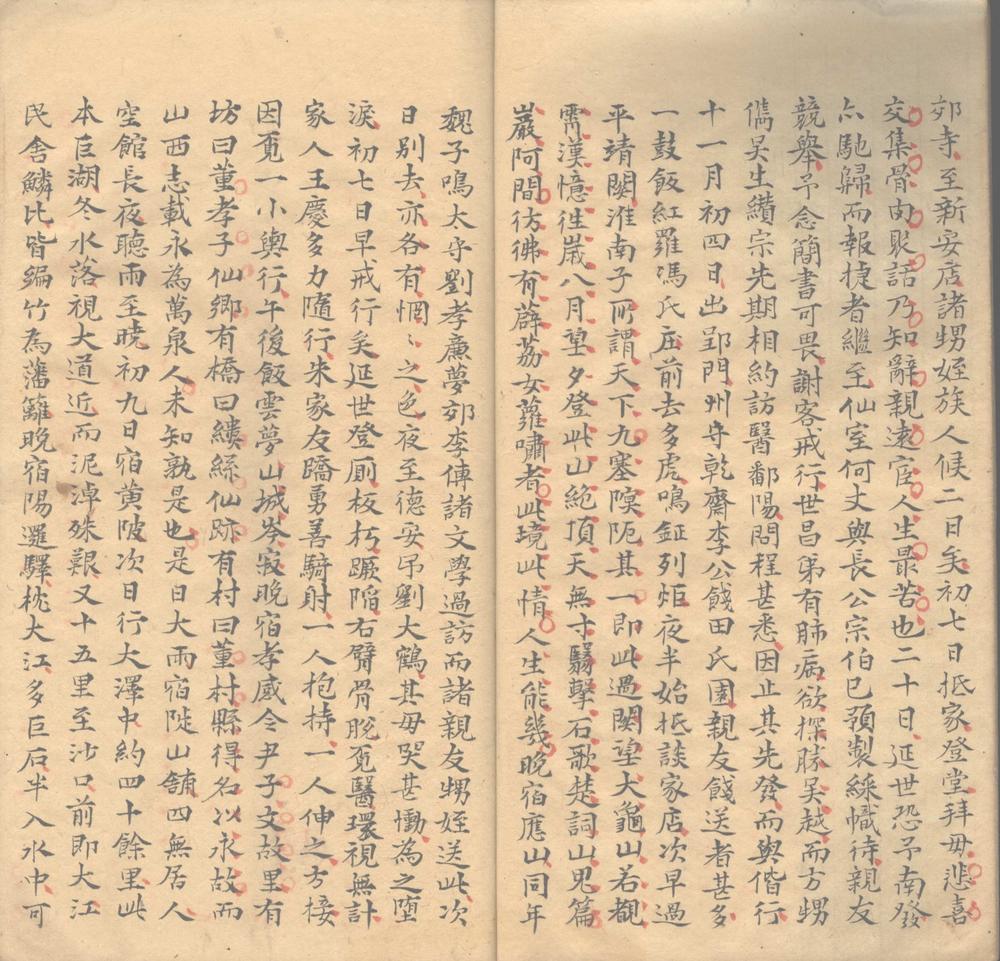 郊寺至新安店諸甥姪族人候二日矣初七日抵家登堂拜母悲喜
交集骨肉聚話乃知辭親遠宦人生最苦也二十日延世恐予南發
亦馳歸而報捷者繼至仙室何丈與長公宗伯已預製綵幟待親友
競舉予念簡書可畏謝客戒行世昌弟有肺病欲探勝吳越而方甥
儁吳生纘宗先期相約訪醫鄱陽問程甚悉因止其先發而與偕行
十一月初四日出郢門州守乾齋李公餞田氏園親友餞送者甚多
一鼓飯紅羅馮氏庄前去多虎鳴鉦列炬夜半始抵談家店次早過
平靖關淮南子所謂天下九塞隩阨其一即此過關望大龜山若覩
霄漢憶徃嵗八月望夕登此山絶頂天無寸翳擊石歌楚詞山鬼篇
巖阿間彷彿有薜荔女蘿嘯者此境此情人生能幾晚宿應山同年
魏子鳴太守劉孝廉夢郊李傳諸文學過訪而諸親友甥姪送此次
日别去亦各有惘〻之色夜至德安吊劉大鶴其母哭甚慟為之墮
淚初七日早戒行矣延世登厠板朽蹶陷右臂骨脫覓醫環視無計
家人王慶多力隨行朱家友蹻勇善騎射一人抱持一人伸之方接
因覓一小輿行午後飯雲夢山城岑寂晚宿孝感令尹子文故里有
坊曰董孝子仙鄉有橋曰縷絲仙跡有村曰董村縣得名以永故而
山西志載永為萬泉人未知孰是也是日大雨宿陡山舖四無居人
空館長夜聽雨至曉初九日宿黄陂次日行大澤中約四十餘里此
本巨湖冬水落視大道近而泥淖殊艱又十五里至沙口前即大江
民舎鱗比皆編竹為藩籬晚宿陽邏驛枕大江多巨石半入水中可